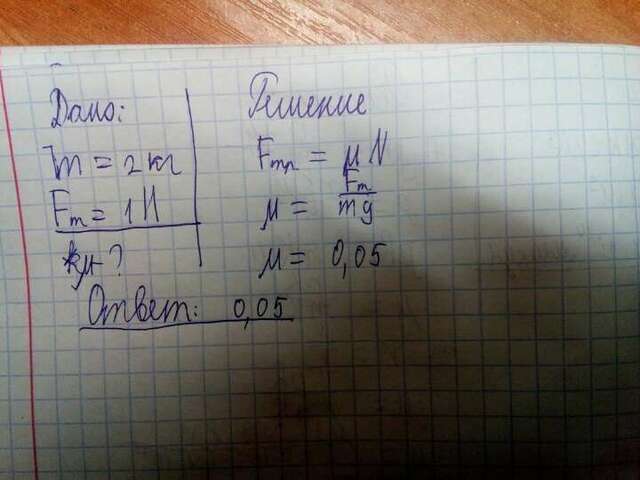 Дано:
m = 2 кг
Fт = 1 Н
μ ?
Решение
Fтр = μN
μ = Fт/mg
μ = 0,05
Ответ: 0,05